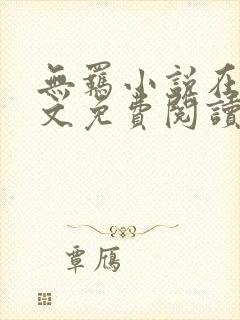 無羈小說在
文免費閱讀
覃雁